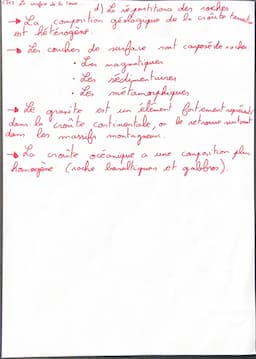 d) La répartitions des roches
→ La composition géologique de la croûte terrestre
est hétérogène.
→ Les couches de surface sont composée de roches
• Les magmatiques
• Les sédimentaires
• Les métamorphiques
→ Le granite est un élément fortement représenté
dans la croûte continentale, on le retrouve surtout
dans les massifs montagneux.
→ La croûte océanique a une composition plus
homogène (roche basaltiques et gabbros).